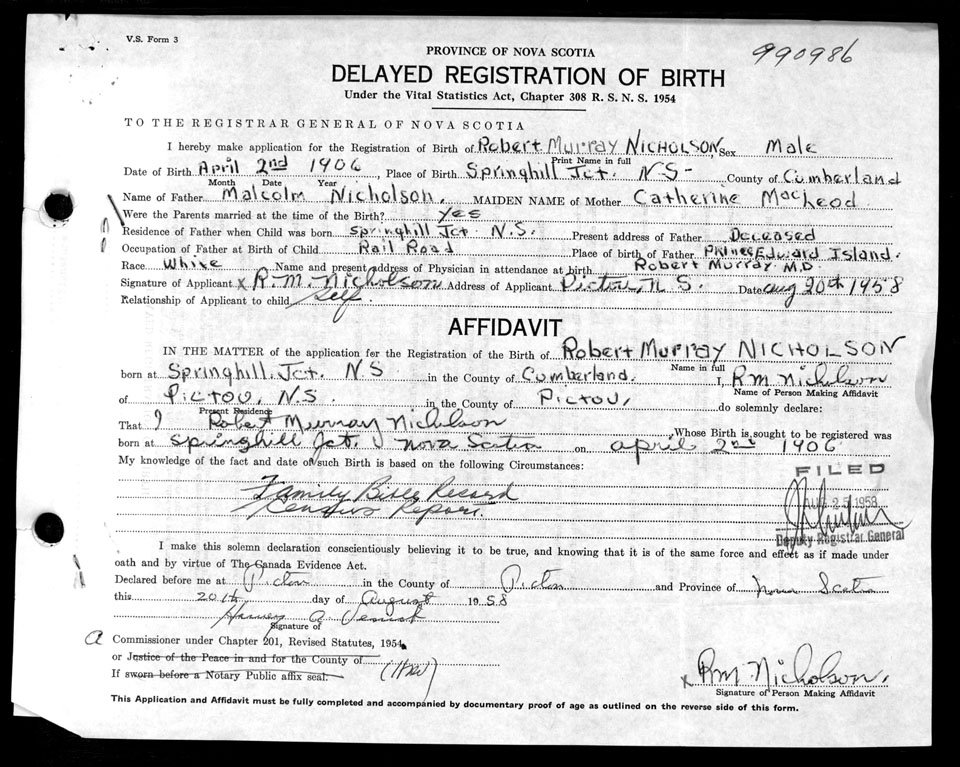 V.S. Form 3
990986
PROVINCE OF NOVA SCOTIA
DELAYED REGISTRATION OF BIRTH
Under the Vital Statistics Act, Chapter 308 R. S. N. S. 1954
TO THE REGISTRAR GENERAL OF NOVA SCOTIA
I hereby make application for the Registration of Birth of Robert Murray NICHOLSON, Sex Male
Print Name in full
Date of Birth April 2nd 1906, Place of Birth Springhill Jct. N.S- County of Cumberland
Month Date Year
Name of Father Malcolm Nicholson. MAIDEN NAME of Mother Catherine MacLeod
Were the Parents married at the time of the Birth? Yes
Residence of Father when Child was born Springhill Jct. N.S. Present address of Father Deceased
Occupation of Father at Birth of Child Rail Road Place of birth of Father Prince Edward Island.
Race White Name and present address of Physician in attendance at birth Robert Murray M.D.
Signature of Applicant x R.M. Nicholson Address of Applicant Pictou, N S. Date Aug 20th 1958
Relationship of Applicant to child Self.
AFFIDAVIT
IN THE MATTER of the application for the Registration of the Birth of Robert Murray NICHOLSON
Name in full
born at Springhill Jct. N S in the County of Cumberland. I, R M Nicholson
Name of Person Making Affidavit
of Pictou, N.S. in the County of Pictou, do solemnly declare:
Present Residence
That I Robert Murray Nicholson Whose Birth is sought to be registered was
born at Springhill Jct. Nova Scotia on April 2nd 1906
My knowledge of the fact and date of such Birth is based on the following Circumstances:
FILED
Family Bible Record
AUG 25 1958
Census Report.
Deputy Registrar General
I make this solemn declaration conscientiously believing it to be true, and knowing that it is of the same force and effect as if made under
oath and by virtue of The Canada Evidence Act.
Declared before me at Pictou in the County of Pictou and Province of Nova Scotia
this 20th day of August 1958
Harvey A.
Signature of
A Commissioner under Chapter 201, Revised Statutes, 1954
or Justice of the Peace in and for the County of
If sworn before a Notary Public affix seal.
x RM Nicholson.
Signature of Person Making Affidavit
This Application and Affidavit must be fully completed and accompanied by documentary proof of age as outlined on the reverse side of this form.